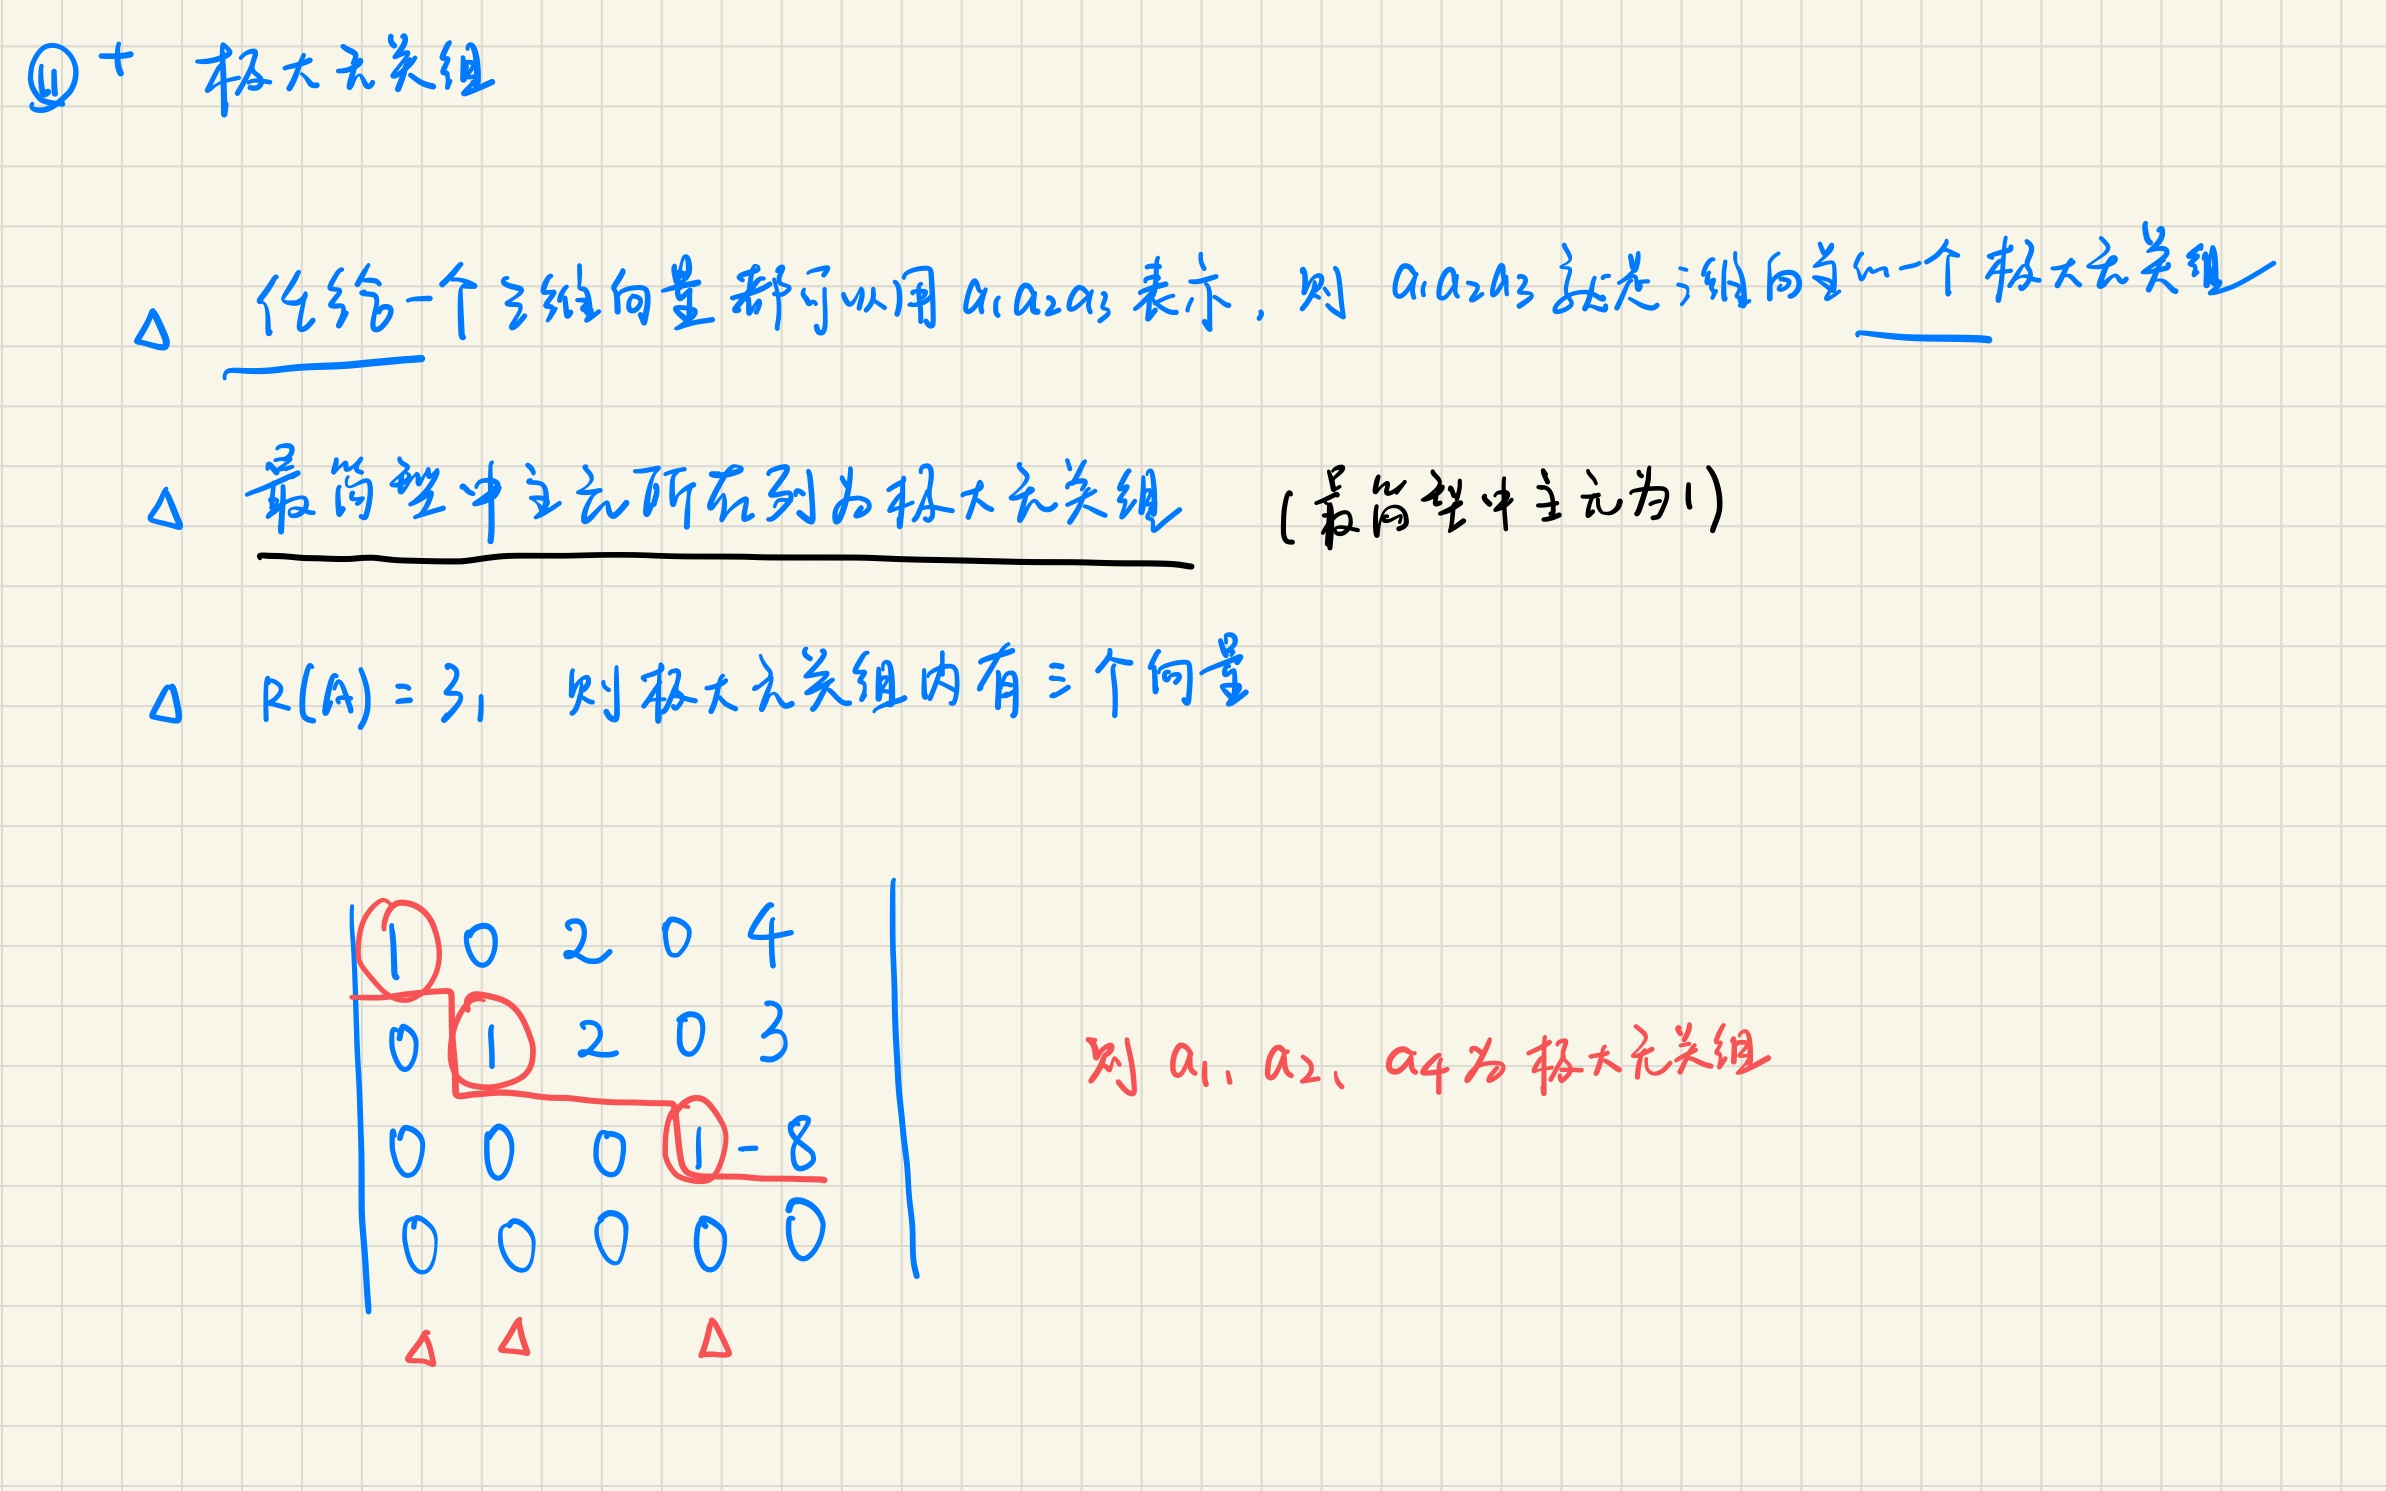 ⑪ + 极大无关组
△ 任给一个三维向量都可以用 a₁a₂a₃ 表示, 则 a₁a₂a₃ 是三维向量的一个极大无关组
△ 最简型中主元所在列为极大无关组 (最简型中主元为1)
△ R(A)=3, 则极大无关组内有三个向量
1 0 2 0 4
0 1 2 0 3
则 a₁、a₂、a₄为极大无关组
0 0 0 1 -8
0 0 0 0 0
△ △ △